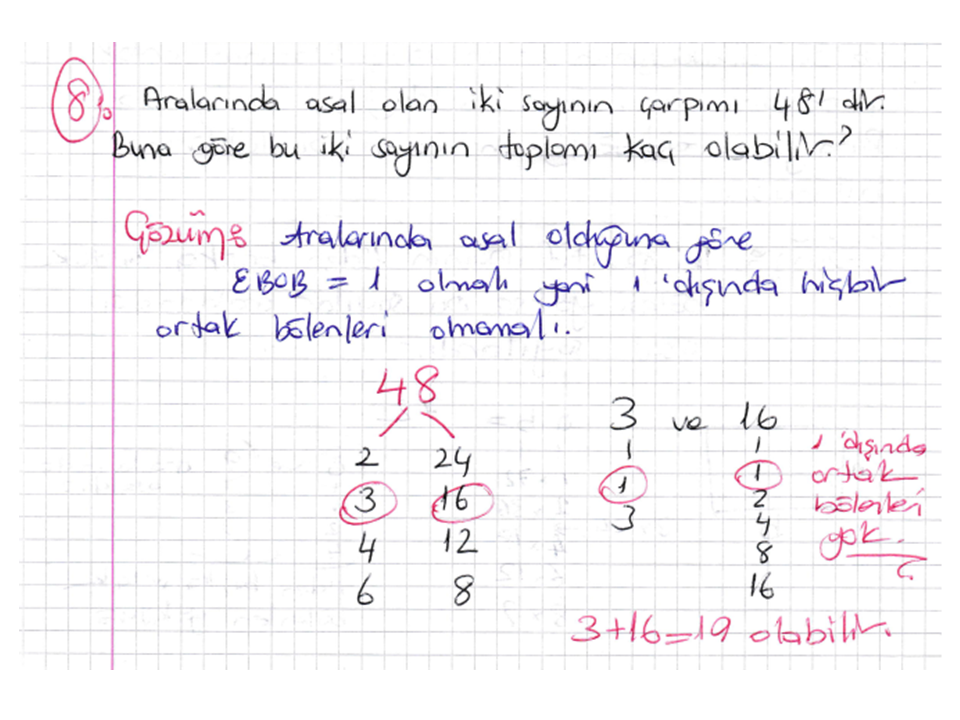 8) Aralarında asal olan iki sayının çarpımı 48'dir.
Buna göre bu iki sayının toplamı kaç olabilir?
Çözüm: Aralarında asal olduğuna göre
EBOB = 1 olmalı yani 1 'dışında hiçbir
ortak bölenleri olmamalı.
48
2 24
3 16
4 12
6 8
3 ve 16
1 1
1 1
3 2
4
8
16
1 'dışında
ortak
bölenleri
yok.
3+16=19 olabilir.